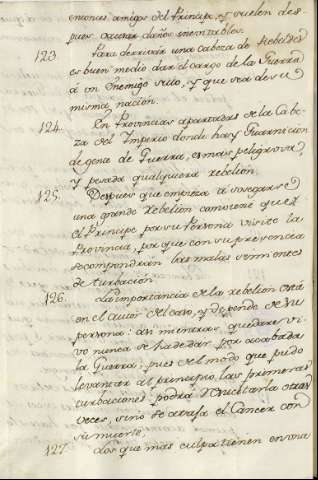 entonces amigos del Principe, y suelen des-
pues causar daños inevitables.
123. Para derrivar una cabeza de Rebeldes
es buen medio dar el cargo de la Guerra
á un Enemigo suio, y que sea de su
misma nacion.
124. En Provincias apartadas de la Cabe-
za del Imperio donde hay Guarnicion
de gente de Guerra, es mas peligrosa,
y pesada qualquiera rebelion.
125. Despues que empieza á sosegarse
una grande Rebelion conviene que
el Principe por su Persona visite la
Provincia, por que con su presencia
se compondrán las malas simientes
de turbacion.
126. La importancia de la rebelion está
en el autor del caso, y depende de su
persona: asi mientras quedare vi-
vo nunca se ha de dar por acabada
la Guerra; pues del modo que pudo
levantar al principio, las primeras
turbaciones podrá resucitarla otras
veces, sino se ataja el Cáncer con
su muerte.
127. Los que mas culpa tienen en una